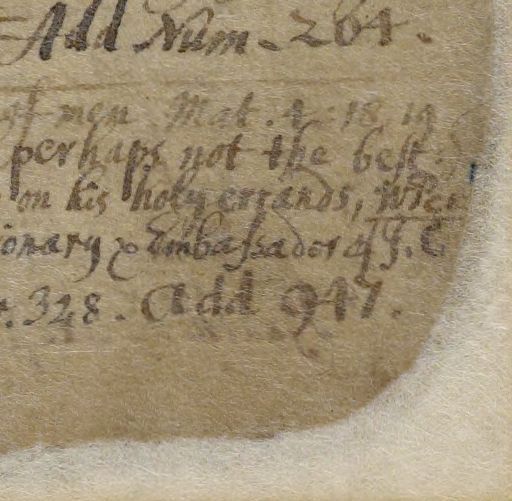 Add Num. 264.
of men Mat. 4: 18, 19
perhaps not the best.
on his holy errands,
ionary & Embassador of J. C
. 328. Add 947.